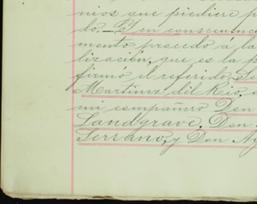 nios que pidiere p
do. Y en consecuenc
mento procedo a la
lización, que es la p
firmó el referido Se
Martinez del Rio,
mi compañero Don
Landgrave, Don
Serrano, y Don Ag